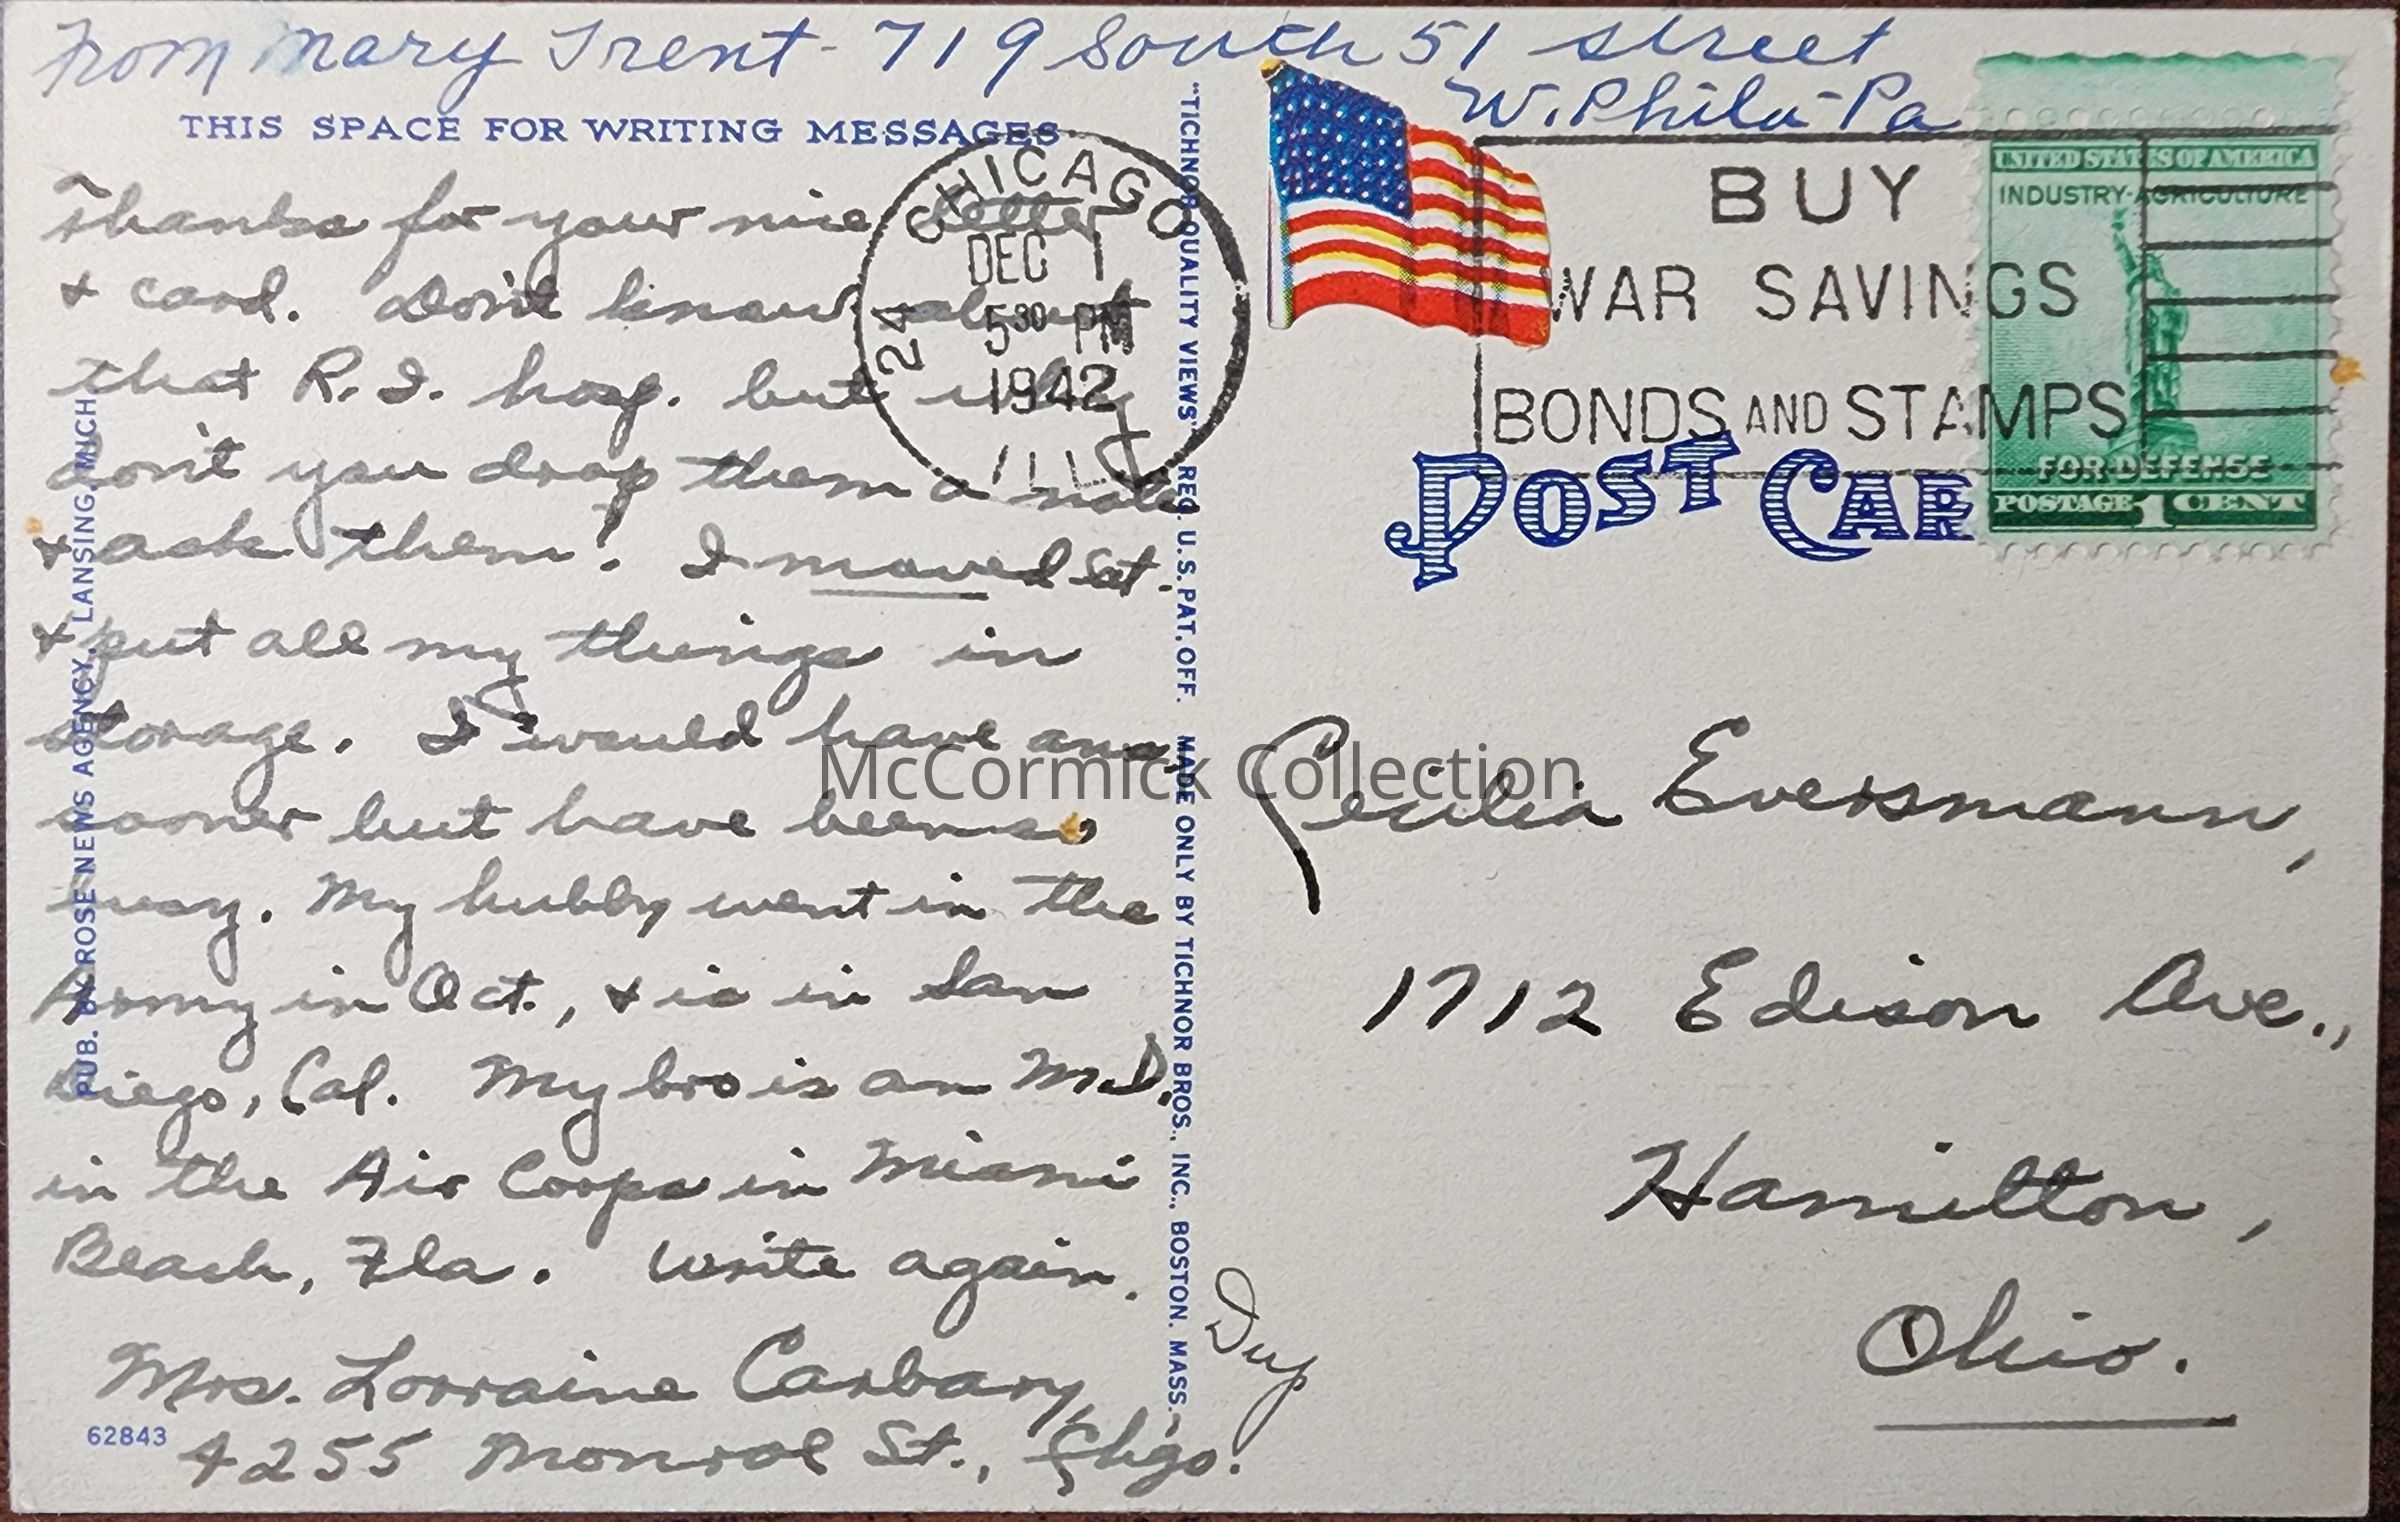 From Mary Trent - 719 South 51 street
W. Phila - Pa
THIS SPACE FOR WRITING MESSAGES
Thanks for your nice letter
& card. Don't know about
that R.I. hosp. but why
don't you drop them a note
& ask them! I moved Sat.
& put all my things in
storage. I would have ans,
sooner but have been so
busy. My hubby went in the
Army in Oct., & is in San
Diego, Cal. My bro is an M.D.
in the Air Corps in Miami
Beach, Fla. Write again.
Mrs. Lorraine Carbary,
4255 Monroe St., Chgo.
62843
PUB. BY ROSE NEWS AGENCY, LANSING, MICH.
CHICAGO
24
DEC 1
5 30 PM
1942
ILL
"TICHNOR QUALITY VIEWS" REG. U.S. PAT. OFF. MADE ONLY BY TICHNOR BROS., INC., BOSTON. MASS.
BUY
WAR SAVINGS
BONDS AND STAMPS
UNITED STATES OF AMERICA
INDUSTRY·AGRICULTURE
FOR DEFENSE
POSTAGE 1 CENT
POST CAR
Cecilia Eversmann,
1712 Edison Ave.,
Hamilton,
Ohio.
Dup
McCormick Collection